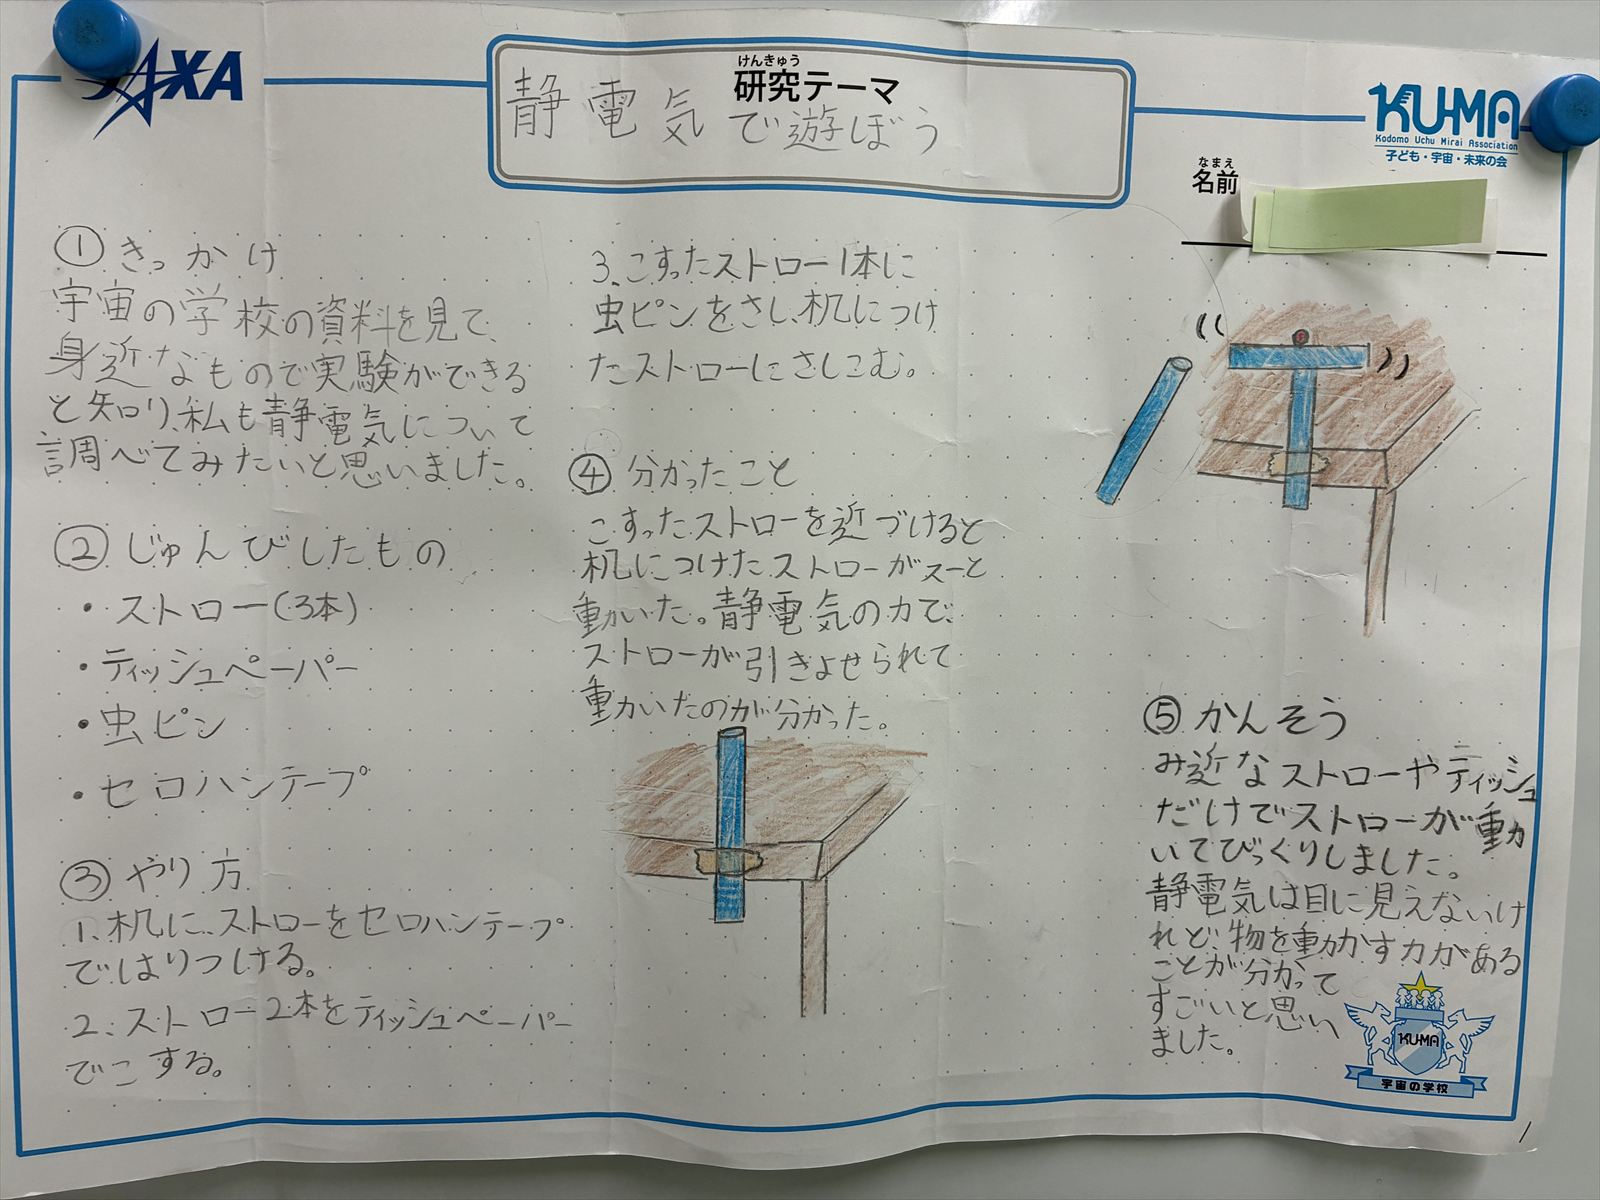 JAXA
けんきゅう
研究テーマ
静電気で遊ぼう
KU-MA
Kodomo Uchu Mirai Association
子ども・宇宙・未来の会
なまえ
名前
① きっかけ
宇宙の学校の資料を見て、
身近なもので実験ができる
と知り、私も静電気について
調べてみたいと思いました。
② じゅんびしたもの
・ストロー(3本)
・ティッシュペーパー
・虫ピン
・セロハンテープ
③ やり方
1、机にストローをセロハンテープ
ではりつける。
2、ストロー2本をティッシュペーパー
でこする。
3、こすったストロー1本に
虫ピンをさし、机につけ
たストローにさしこむ。
④ 分かったこと
こすったストローを近づけると
机につけたストローがスーと
動いた。静電気の力で、
ストローが引きよせられて
動いたのが分かった。
⑤ かんそう
み近なストローやティッシュ
だけでストローが動
いてびっくりしました。
静電気は目に見えないけ
れど、物を動かす力がある
ことが分かって
すごいと思い
ました。
KU-MA
宇宙の学校